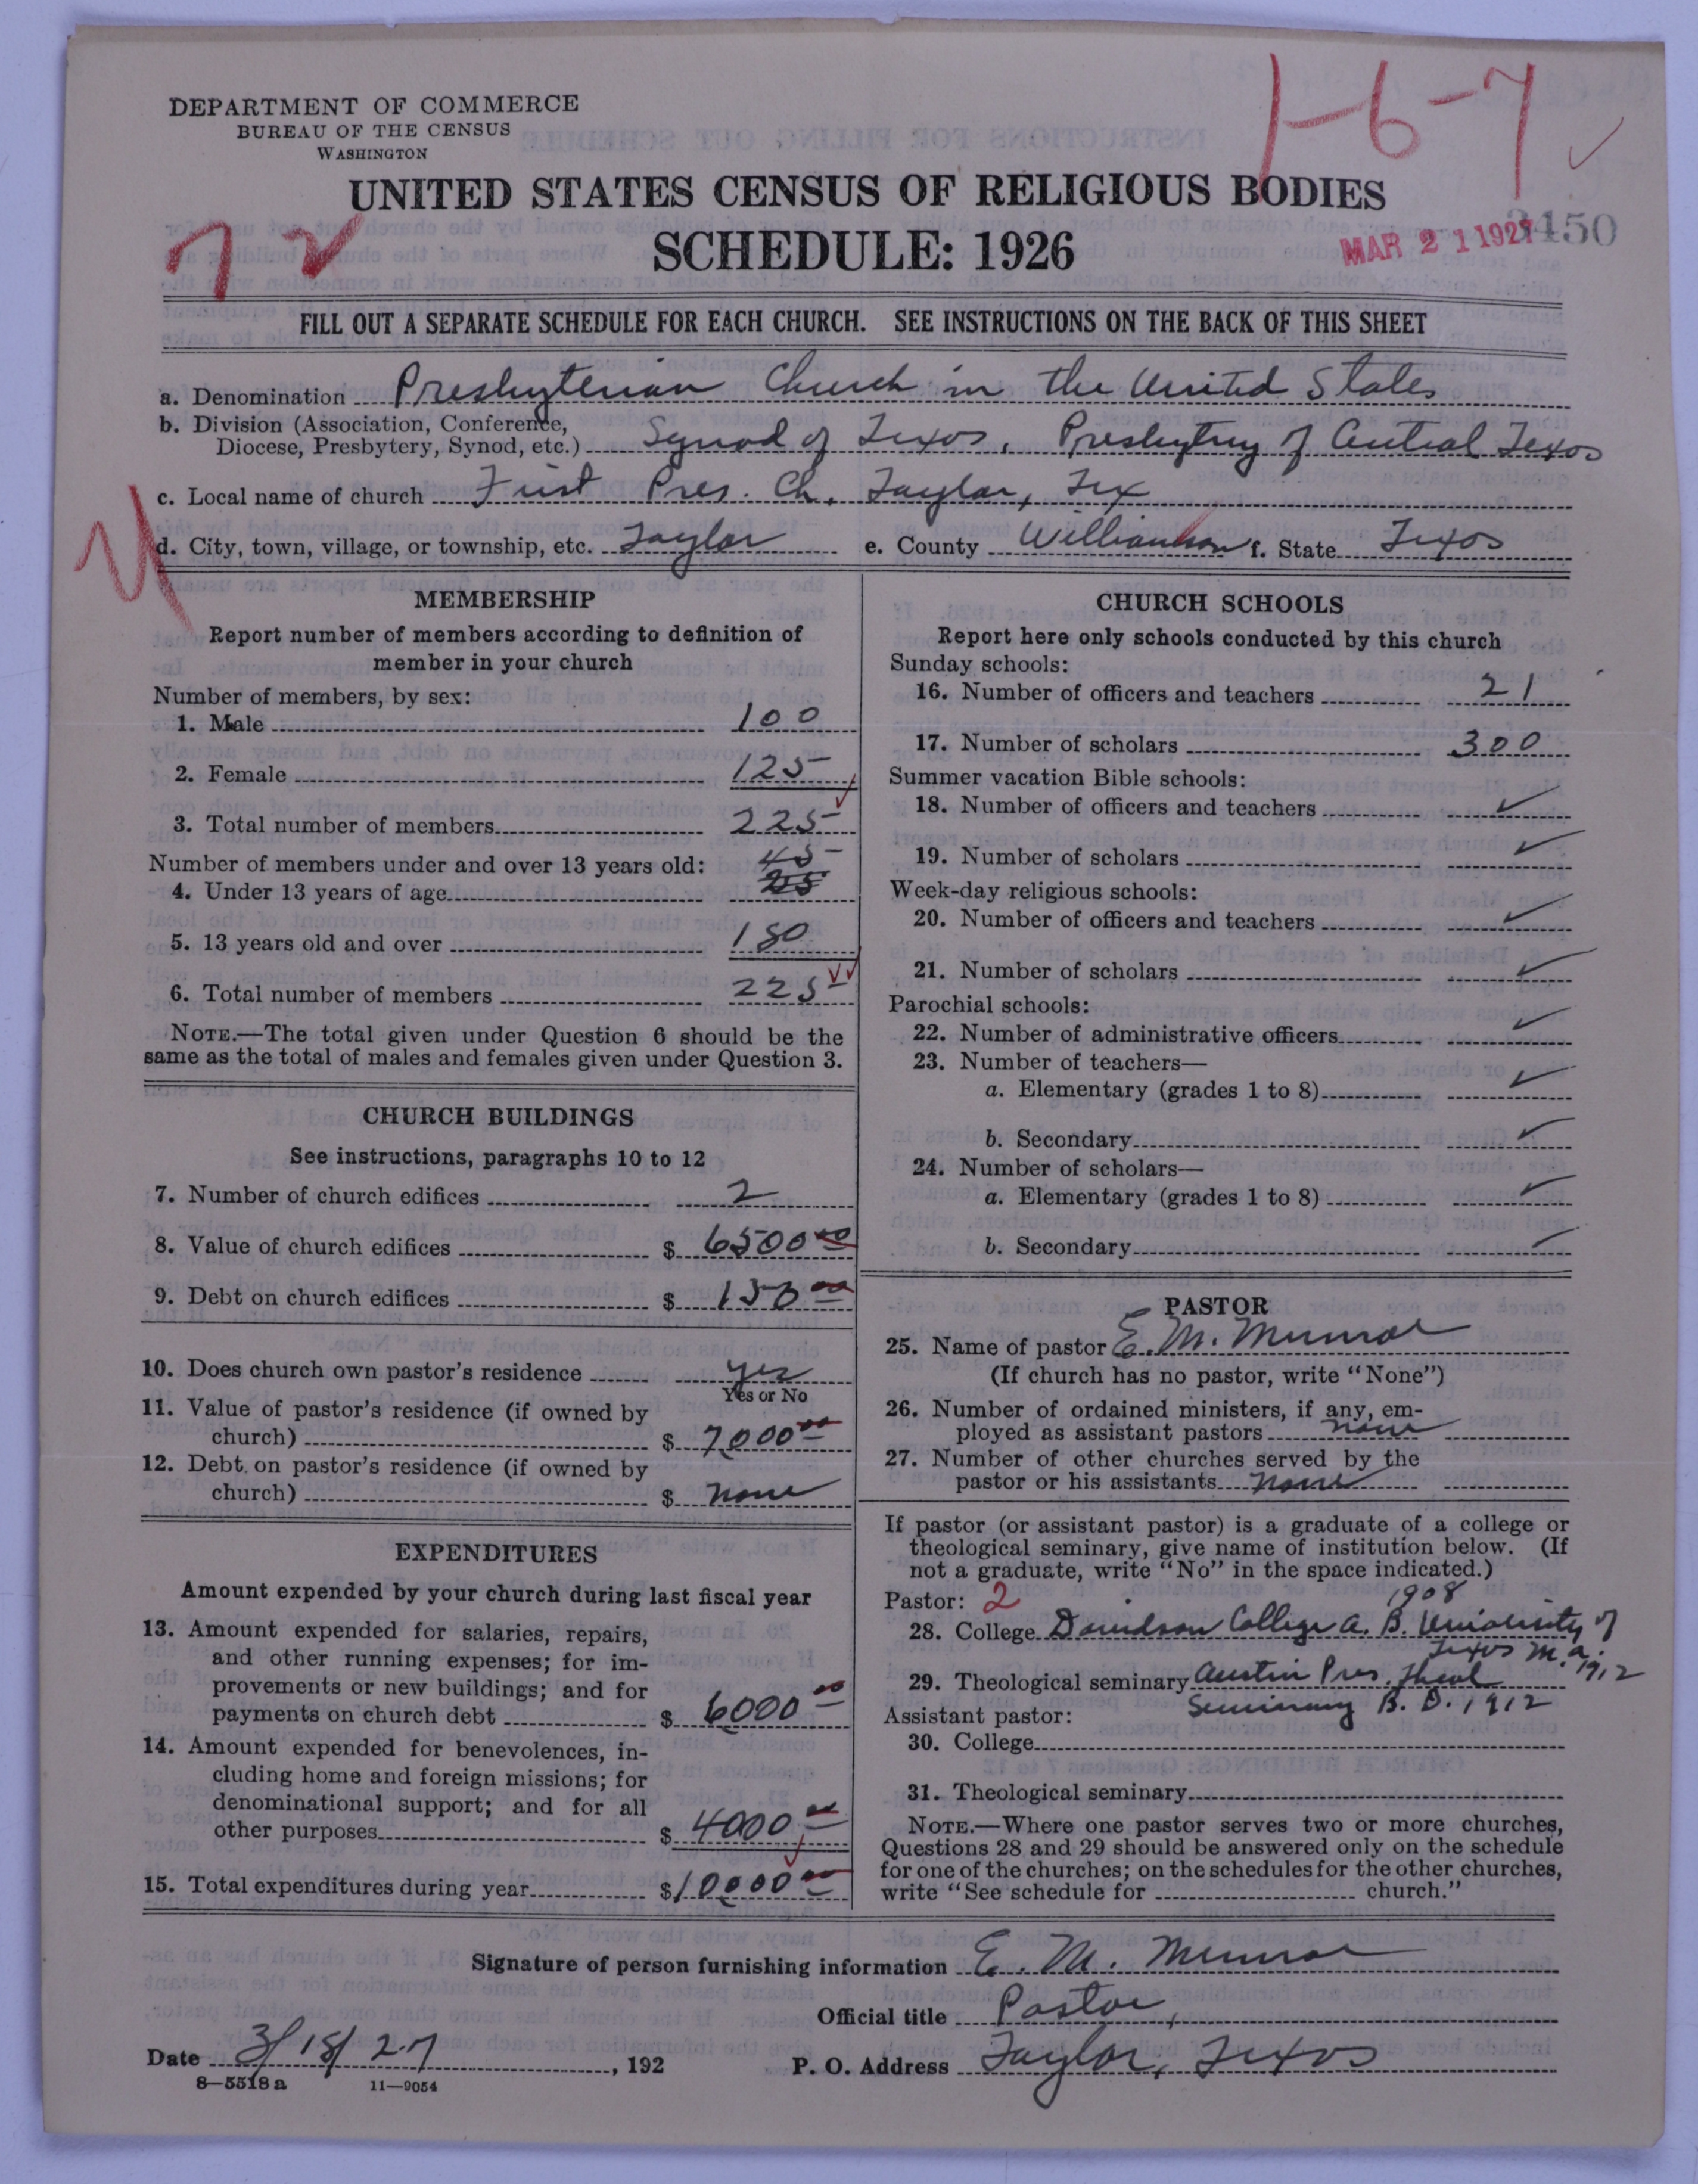 DEPARTMENT OF COMMERCE
BUREAU OF THE CENSUS
WASHINGTON
1-6-7
UNITED STATES CENSUS OF RELIGIOUS BODIES
SCHEDULE: 1926
MAR 21 1927
3450
FILL OUT A SEPARATE SCHEDULE FOR EACH CHURCH. SEE INSTRUCTIONS ON THE BACK OF THIS SHEET
a. Denomination Presbyterian Church in the United States
b. Division (Association, Conference,
Diocese, Presbytery, Synod, etc.) Synod of Texas, Presbytry of Central Texas
c. Local name of church First Pres. Ch. Taylor, Tex
d. City, town, village, or township, etc. Taylor e. County Williamson f. State Texas
MEMBERSHIP
Report number of members according to definition of
member in your church
Number of members, by sex:
1. Male 100
2. Female 125
3. Total number of members 225
Number of members under and over 13 years old: 45
4. Under 13 years of age
5. 13 years old and over 180
6. Total number of members 225
NOTE.—The total given under Question 6 should be the
same as the total of males and females given under Question 3.
CHURCH BUILDINGS
See instructions, paragraphs 10 to 12
7. Number of church edifices 2
8. Value of church edifices $ 6500 00
9. Debt on church edifices $ 150 00
10. Does church own pastor's residence yes
Yes or No
11. Value of pastor's residence (if owned by
church) $ 7000 00
12. Debt on pastor's residence (if owned by
church) $ none
EXPENDITURES
Amount expended by your church during last fiscal year
13. Amount expended for salaries, repairs,
and other running expenses; for im-
provements or new buildings; and for
payments on church debt $ 6000 00
14. Amount expended for benevolences, in-
cluding home and foreign missions; for
denominational support; and for all
other purposes $ 4000 00
15. Total expenditures during year $ 10000 00
CHURCH SCHOOLS
Report here only schools conducted by this church
Sunday schools:
16. Number of officers and teachers 21
17. Number of scholars 300
Summer vacation Bible schools:
18. Number of officers and teachers
19. Number of scholars
Week-day religious schools:
20. Number of officers and teachers
21. Number of scholars
Parochial schools:
22. Number of administrative officers
23. Number of teachers—
a. Elementary (grades 1 to 8)
b. Secondary
24. Number of scholars—
a. Elementary (grades 1 to 8)
b. Secondary
PASTOR
25. Name of pastor E. M. Munroe
(If church has no pastor, write "None")
26. Number of ordained ministers, if any, em-
ployed as assistant pastors none
27. Number of other churches served by the
pastor or his assistants none
If pastor (or assistant pastor) is a graduate of a college or
theological seminary, give name of institution below. (If
not a graduate, write "No" in the space indicated.)
Pastor: 2 1908
28. College Davidson College A. B. University of
Texas M.A.
29. Theological seminary Austin Pres. Theol 1912
Seminary B. D. 1912
Assistant pastor:
30. College
31. Theological seminary
NOTE.—Where one pastor serves two or more churches,
Questions 28 and 29 should be answered only on the schedule
for one of the churches; on the schedules for the other churches,
write "See schedule for church."
Signature of person furnishing information E. M. Munroe
Official title Pastor,
Date 3/18/27, 192 P. O. Address Taylor, Texas
8—5518 a 11—9054